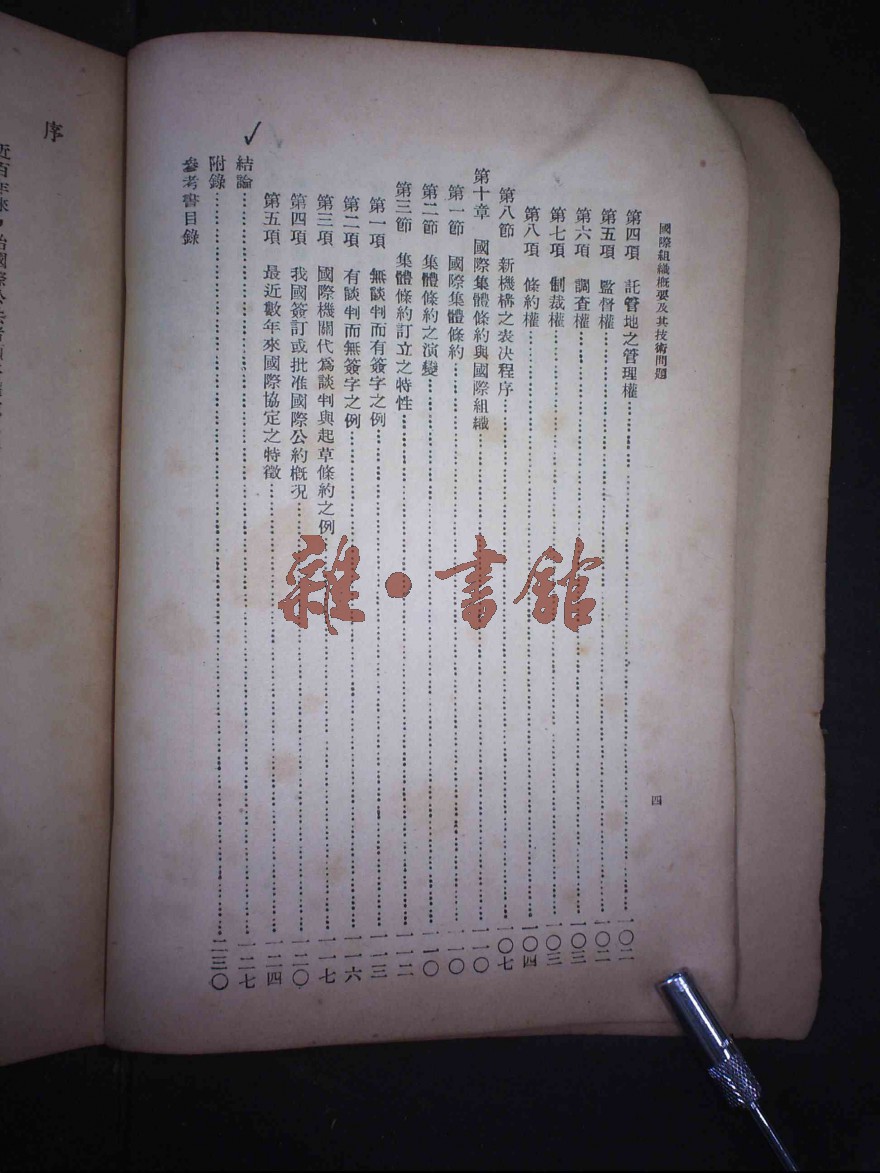 國際組織概要及其技術問題
四
第四項 託管地之管理權……一〇二
第五項 監督權……一〇二
第六項 調查權……一〇三
第七項 制裁權……一〇三
第八項 條約權……一〇四
第八節 新機構之表決程序……一〇七
第十章 國際集體條約與國際組織……一一〇
第一節 國際集體條約……一一〇
第二節 集體條約之演變……一一〇
第三節 集體條約訂立之特性……一一二
第一項 無談判而有簽字之例……一一三
第二項 有談判而無簽字之例……一一六
第三項 國際機關代為談判與起草條約之例……一一七
第四項 我國簽訂或批准國際公約概況……一二〇
第五項 最近數年來國際協定之特徵……一二四
結論……一二七
附錄……一三〇
參考書目錄
序
雜·書館